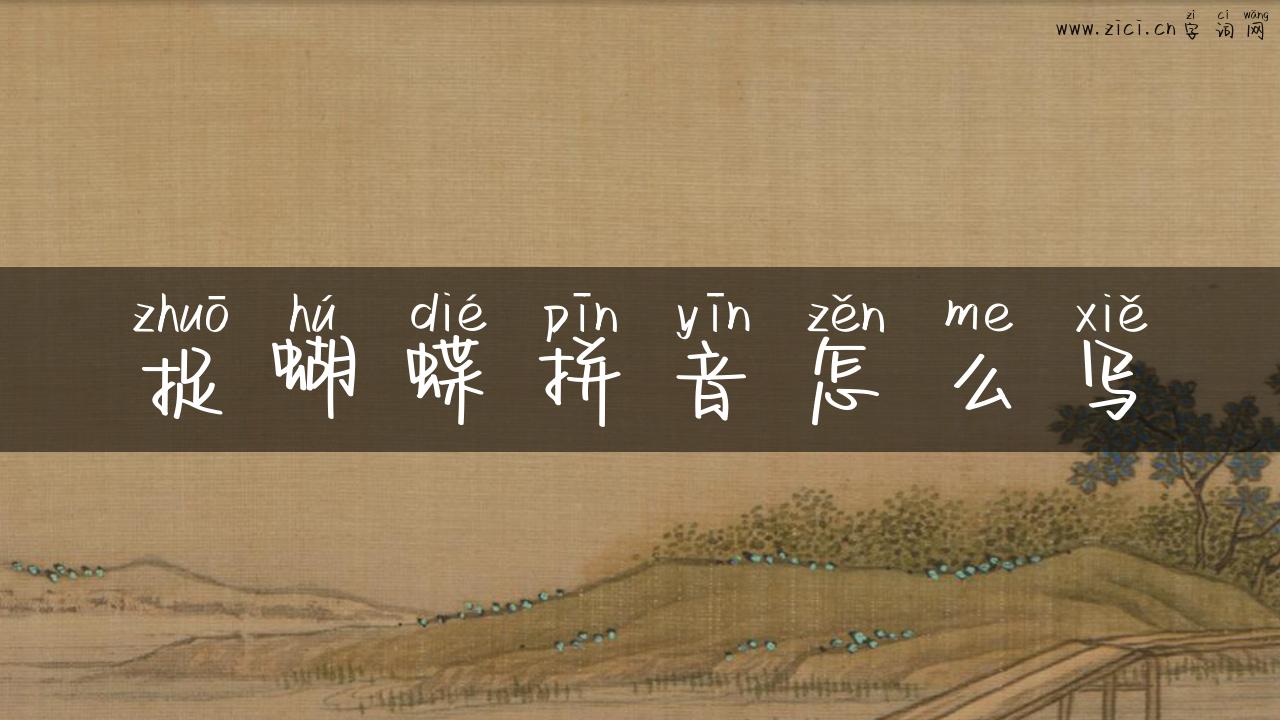 zì cí wǎng
www.zici.cn字词网
zhuō hú dié pīn yīn zěn me xiě
捉蝴蝶拼音怎么写